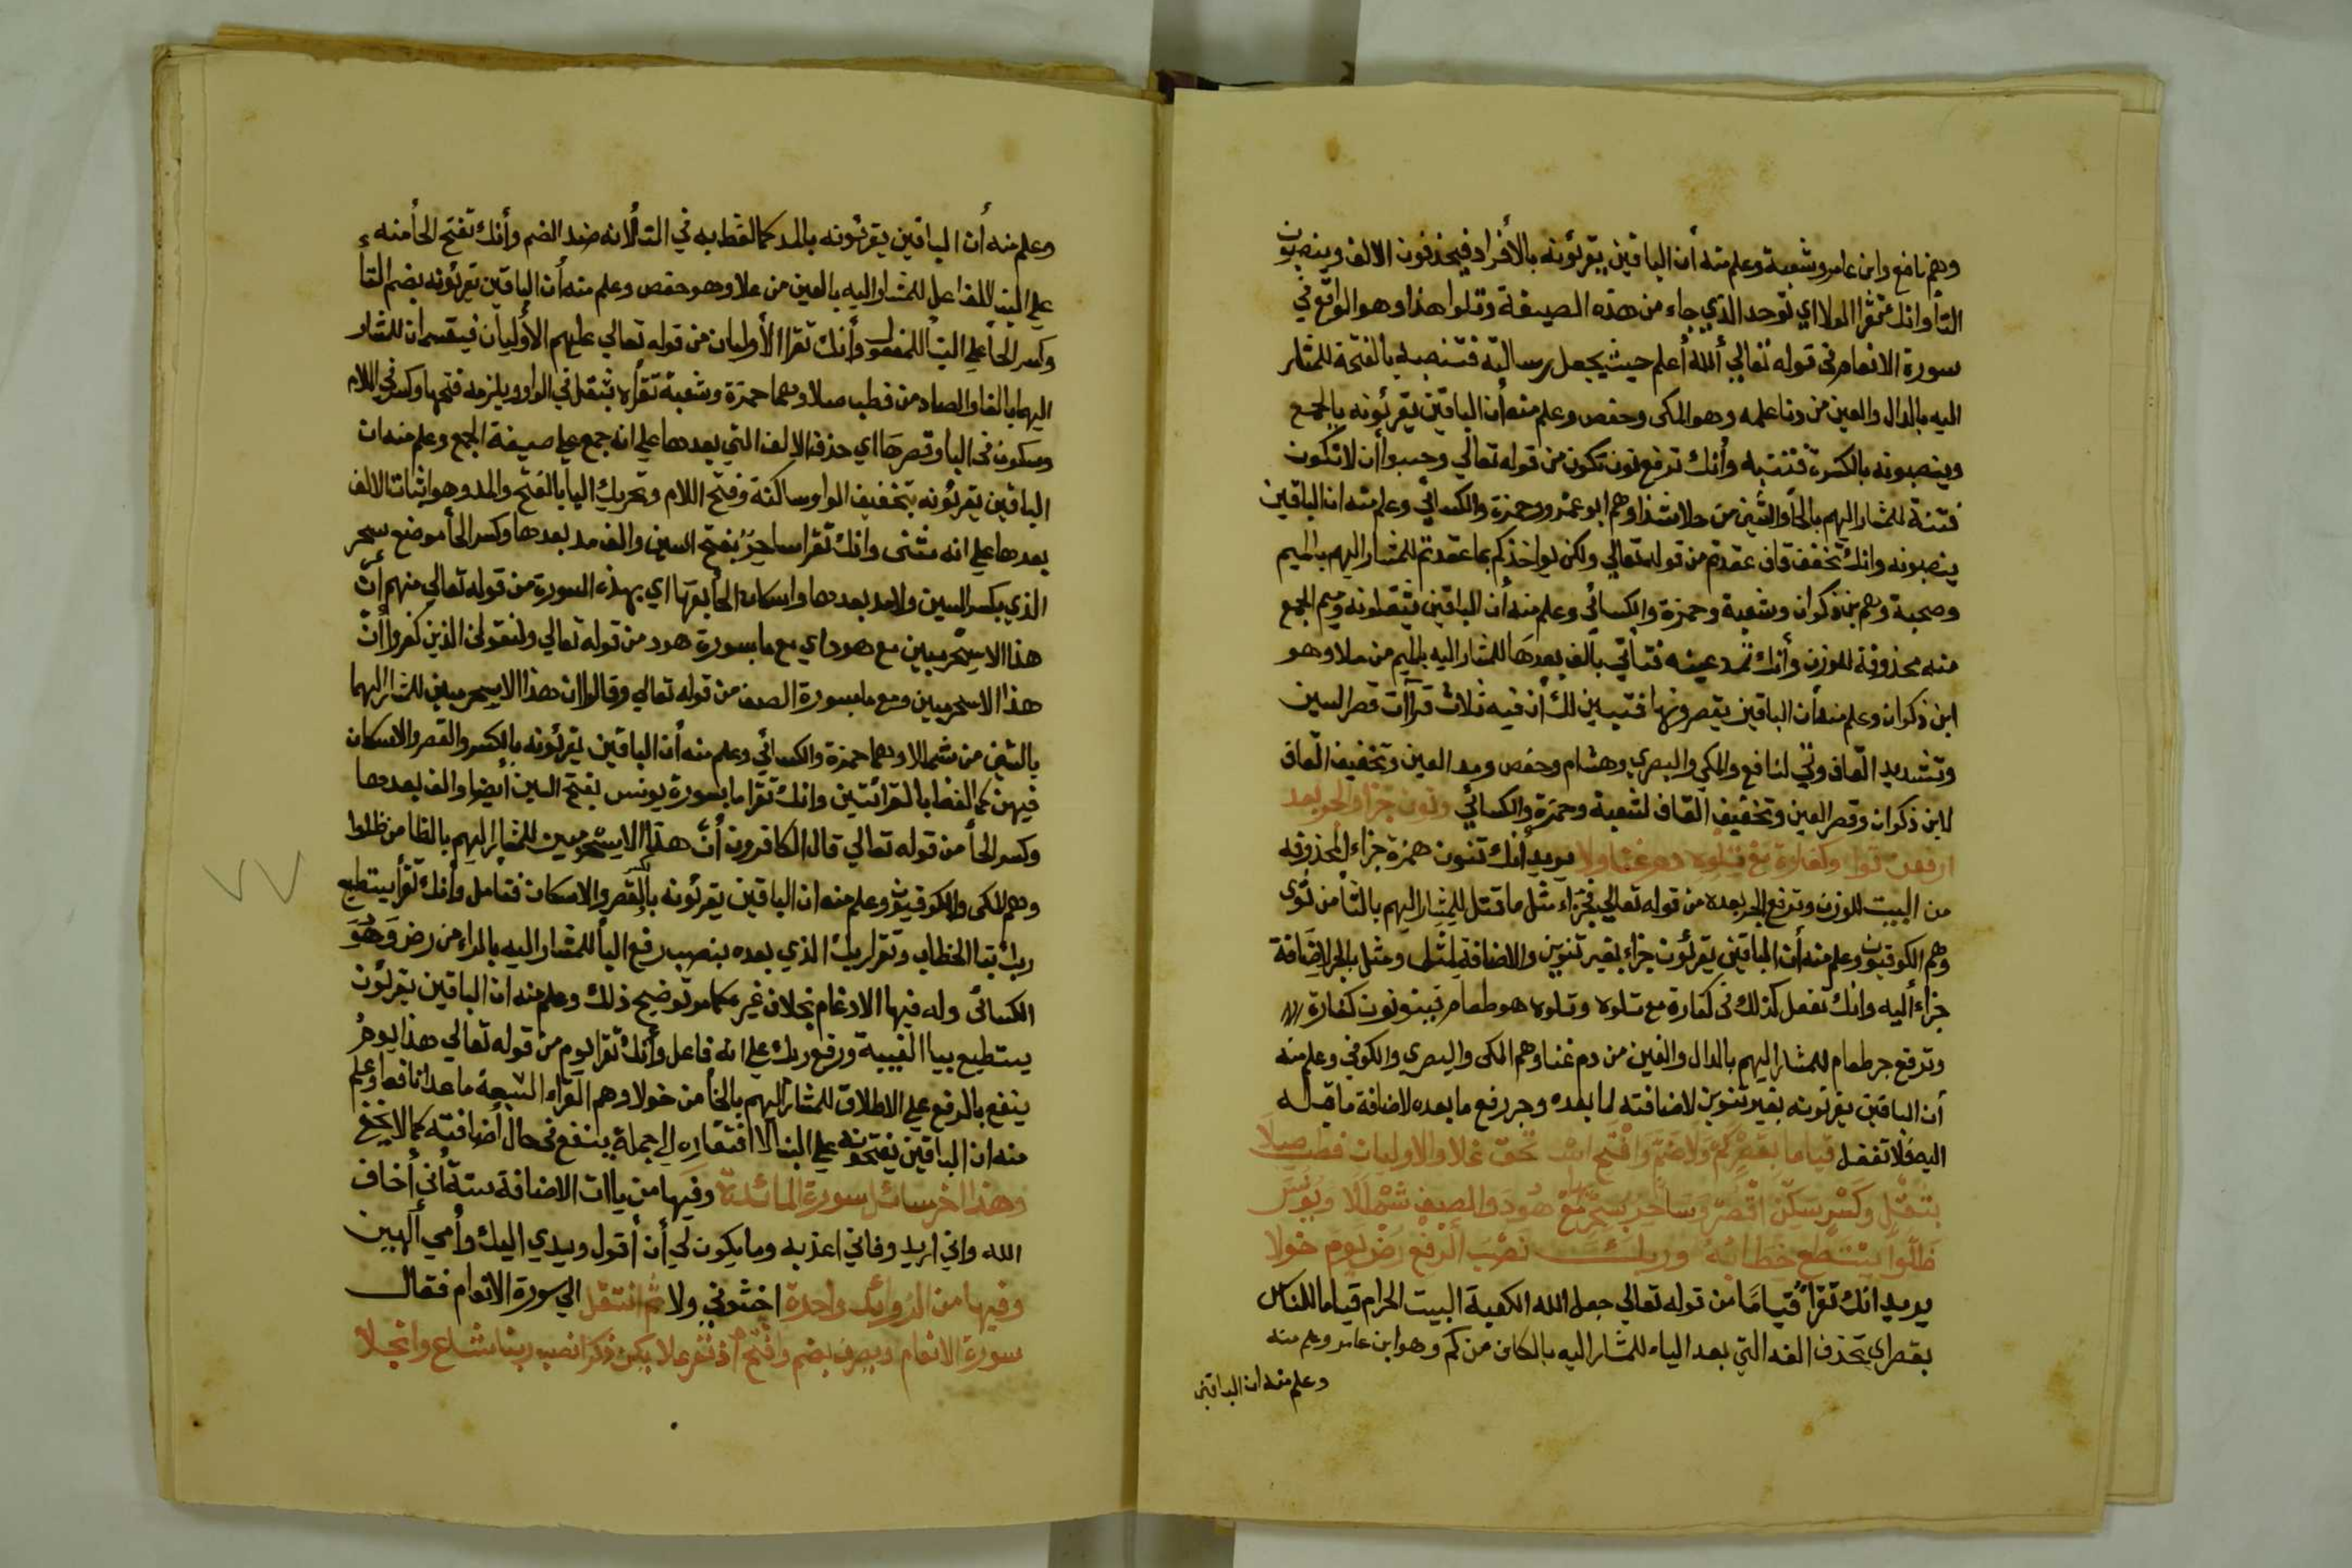 وهم نافع وابن عامر وشعبة وعلم منه أن الباقين يقرئونه بالأفراد فيحذفون الالف وينصبون
التا وانك تقرا المولا اي توحد الذي جاء من هذه الصيغة وتلوا هذا وهو الواقع في
سورة الانعام في قوله تعالي ألله أعلم حيث يجعل رسالته فتنصبه بالفتحة للمشار
اليه بالدال والعين من دنا علمه وهو المكى وحفص وعلم منه أن الباقين يقرئونه بالجمع
وينصبونه بالكسرة فتنبه وأنك ترفع نون تكون من قوله تعالي وحسبوا أن لا تكون
فتنة للمشار اليهم بالحا والشين من حلا شذا وهم ابو عمرو وحمزة والكسائي وعلم منه ان الباقين
ينصبونه وانك تخفف قاف عقدتم من قوله تعالي ولكن يواخذكم بما عقدتم للمشار اليهم بالميم
وصحبة وهم بن ذكوان وشعبة وحمزة والكسائي وعلم منه أن الباقين يثقلونه وميم الجمع
منه محذوفة للوزن وأنك تمد عينه فتأتي بالف بعدها للمشار اليه بالميم من ملا وهو
ابن ذكوان وعلم منه أن الباقين يقصرونها فتبين لك أن فيه ثلاث قراآت قصر العين
وتشديد القاف وفي لنافع والمكي والبصري وهشام وحفص ومد العين وتخفيف القاف
لابن ذكوان وقصر العين وتخفيف القاف لشعبة وحمزة والكسائي ونون جزا والجر بعد
ارفعن ثوا وكفارة مع تلوه دم غنا ولا يريد أنك تنون همزة جزاء المحذوفه
من البيت للوزن وترفع الجر بعده من قوله تعالي فجزاء مثل ما قتل للمشار اليهم بالثا من ثوى
وهم الكوفيون وعلم منه أن الباقين يقرئون جزاء بغير تنوين والاضافة لمثل ومثل بالجر لاضافة
جزاء أليه وانك تفعل كذلك في كفارة مع تلوه وتلوه هو طعام فينونون كفارة
وترفع جر طعام للمشار اليهم بالدال والغين من دم غنا وهم المكى والبصري والكوفي وعلم منه
أن الباقين يقرئونه بغير تنوين لاضافته لما بعده وجر رفع ما بعده لاضافة ما قبله
اليه فلا تغفل قياما بقصر كم ولا ضم وافتح استحق علا والاوليان فطب صلا
بثقل وكسر سكن اقصر وساحر بسحر مع هود والصف شمللا ويونس
ظلوا يستطع خطابه وربك نصب الرفع رض يوم خولا
يريد انك تقرأ قياما من قوله تعالي جعل الله الكعبة البيت الحرام قياما للناس
بقصر اي بحذف الفه التي بعد الياء للمشار اليه بالكاف من كم وهو ابن عامر وعلم منه
وعلم منه ان الباقين
وعلم منه أن الباقين يقرئونه بالمد كما لفظ به في التلا لانه ضد الضم وأنك تفتح الحا منه
علي البنا للفاعل للمشار اليه بالعين من علا وهو حفص وعلم منه أن الباقين يقرئونه بضم التا
وكسر الحا علي البنا للمفعول وأنك تقرا الأوليان من قوله تعالي عليهم الأوليان فيقسمان للمشار
اليهما بالفا والصاد من فطب صلا وهما حمزة وشعبة تقرأه بثقل في الواو ويلزمه فتحها وكسر في اللام
وسكون في اليا وقصرها اي حذف الالف التي بعدها علي انه جمع علي صيغة الجمع وعلم منه ان
الباقين يقرئونه بتخفيف الواو ساكنة وفتح اللام وتحريك اليا بالفتح والمد وهو اثبات الالف
بعدها علي انه مثنى وانك تقرا ساحر بفتح السين والف مد بعدها وكسر الحا موضع سحر
الذي بكسر السين ولا مد بعدها واسكان الحا بها اي بهذه السورة من قوله تعالي منهم أن
هذا الا سحر مبين مع هود اي مع ما بسورة هود من قوله تعالي وليقولن الذين كفروا أن
هذا الا سحر مبين ومع ما بسورة الصف من قوله تعالي وقالوا ان هذا الا سحر مبين للمشار اليهما
بالشين من شمللا وهما حمزة والكسائي وعلم منه أن الباقين يقرئونه بالكسر والقصر والاسكان
فيهن كما لفظ بالقرائتين وانك تقرا ما بسورة يونس بفتح السين أيضا والف بعدها
وكسر الحا من قوله تعالي قال الكافرون أن هذا الا سحر مبين للمشار اليهم بالظا من ظلوا
وهم المكى والكوفيون وعلم منه ان الباقين يقرئونه بالكسر والقصر والاسكان فتامل وأنك تقرأ يستطيع
ربك بتا الخطاب وتقرا ربك الذي بعده بنصب رفع البا للمشار اليه بالراء من رض وهو
الكسائى وله فيها الادغام بخلاف غيره كما مر توضيح ذلك وعلم منه ان الباقين يقرئون
يستطيع بيا الغيبة ورفع ربك علي انه فاعل وأنك تقرا يوم من قوله تعالي هذا يوم
ينفع بالرفع علي الاطلاق للمشار اليهم بالخا من خولا وهم القراء السبعة ما عدا نافعا وعلم
منه ان الباقين يفتحونه علي البنا لا افتقاره الي جملة ينفع في حال أضافته كما لا يخفى
وهذا اخر مسائل سورة المائدة وفيها من ياات الاضافة ستة أني أخاف
الله واني اريد وفاني اعذبه وما يكون لي أن أقول ويدي اليك وأمي ألهين
وفيها من الزوائد واحدة اخشوني ولا ثم انتقل الي سورة الانعام فقال
سورة الانعام ويصرف بضم وافتح